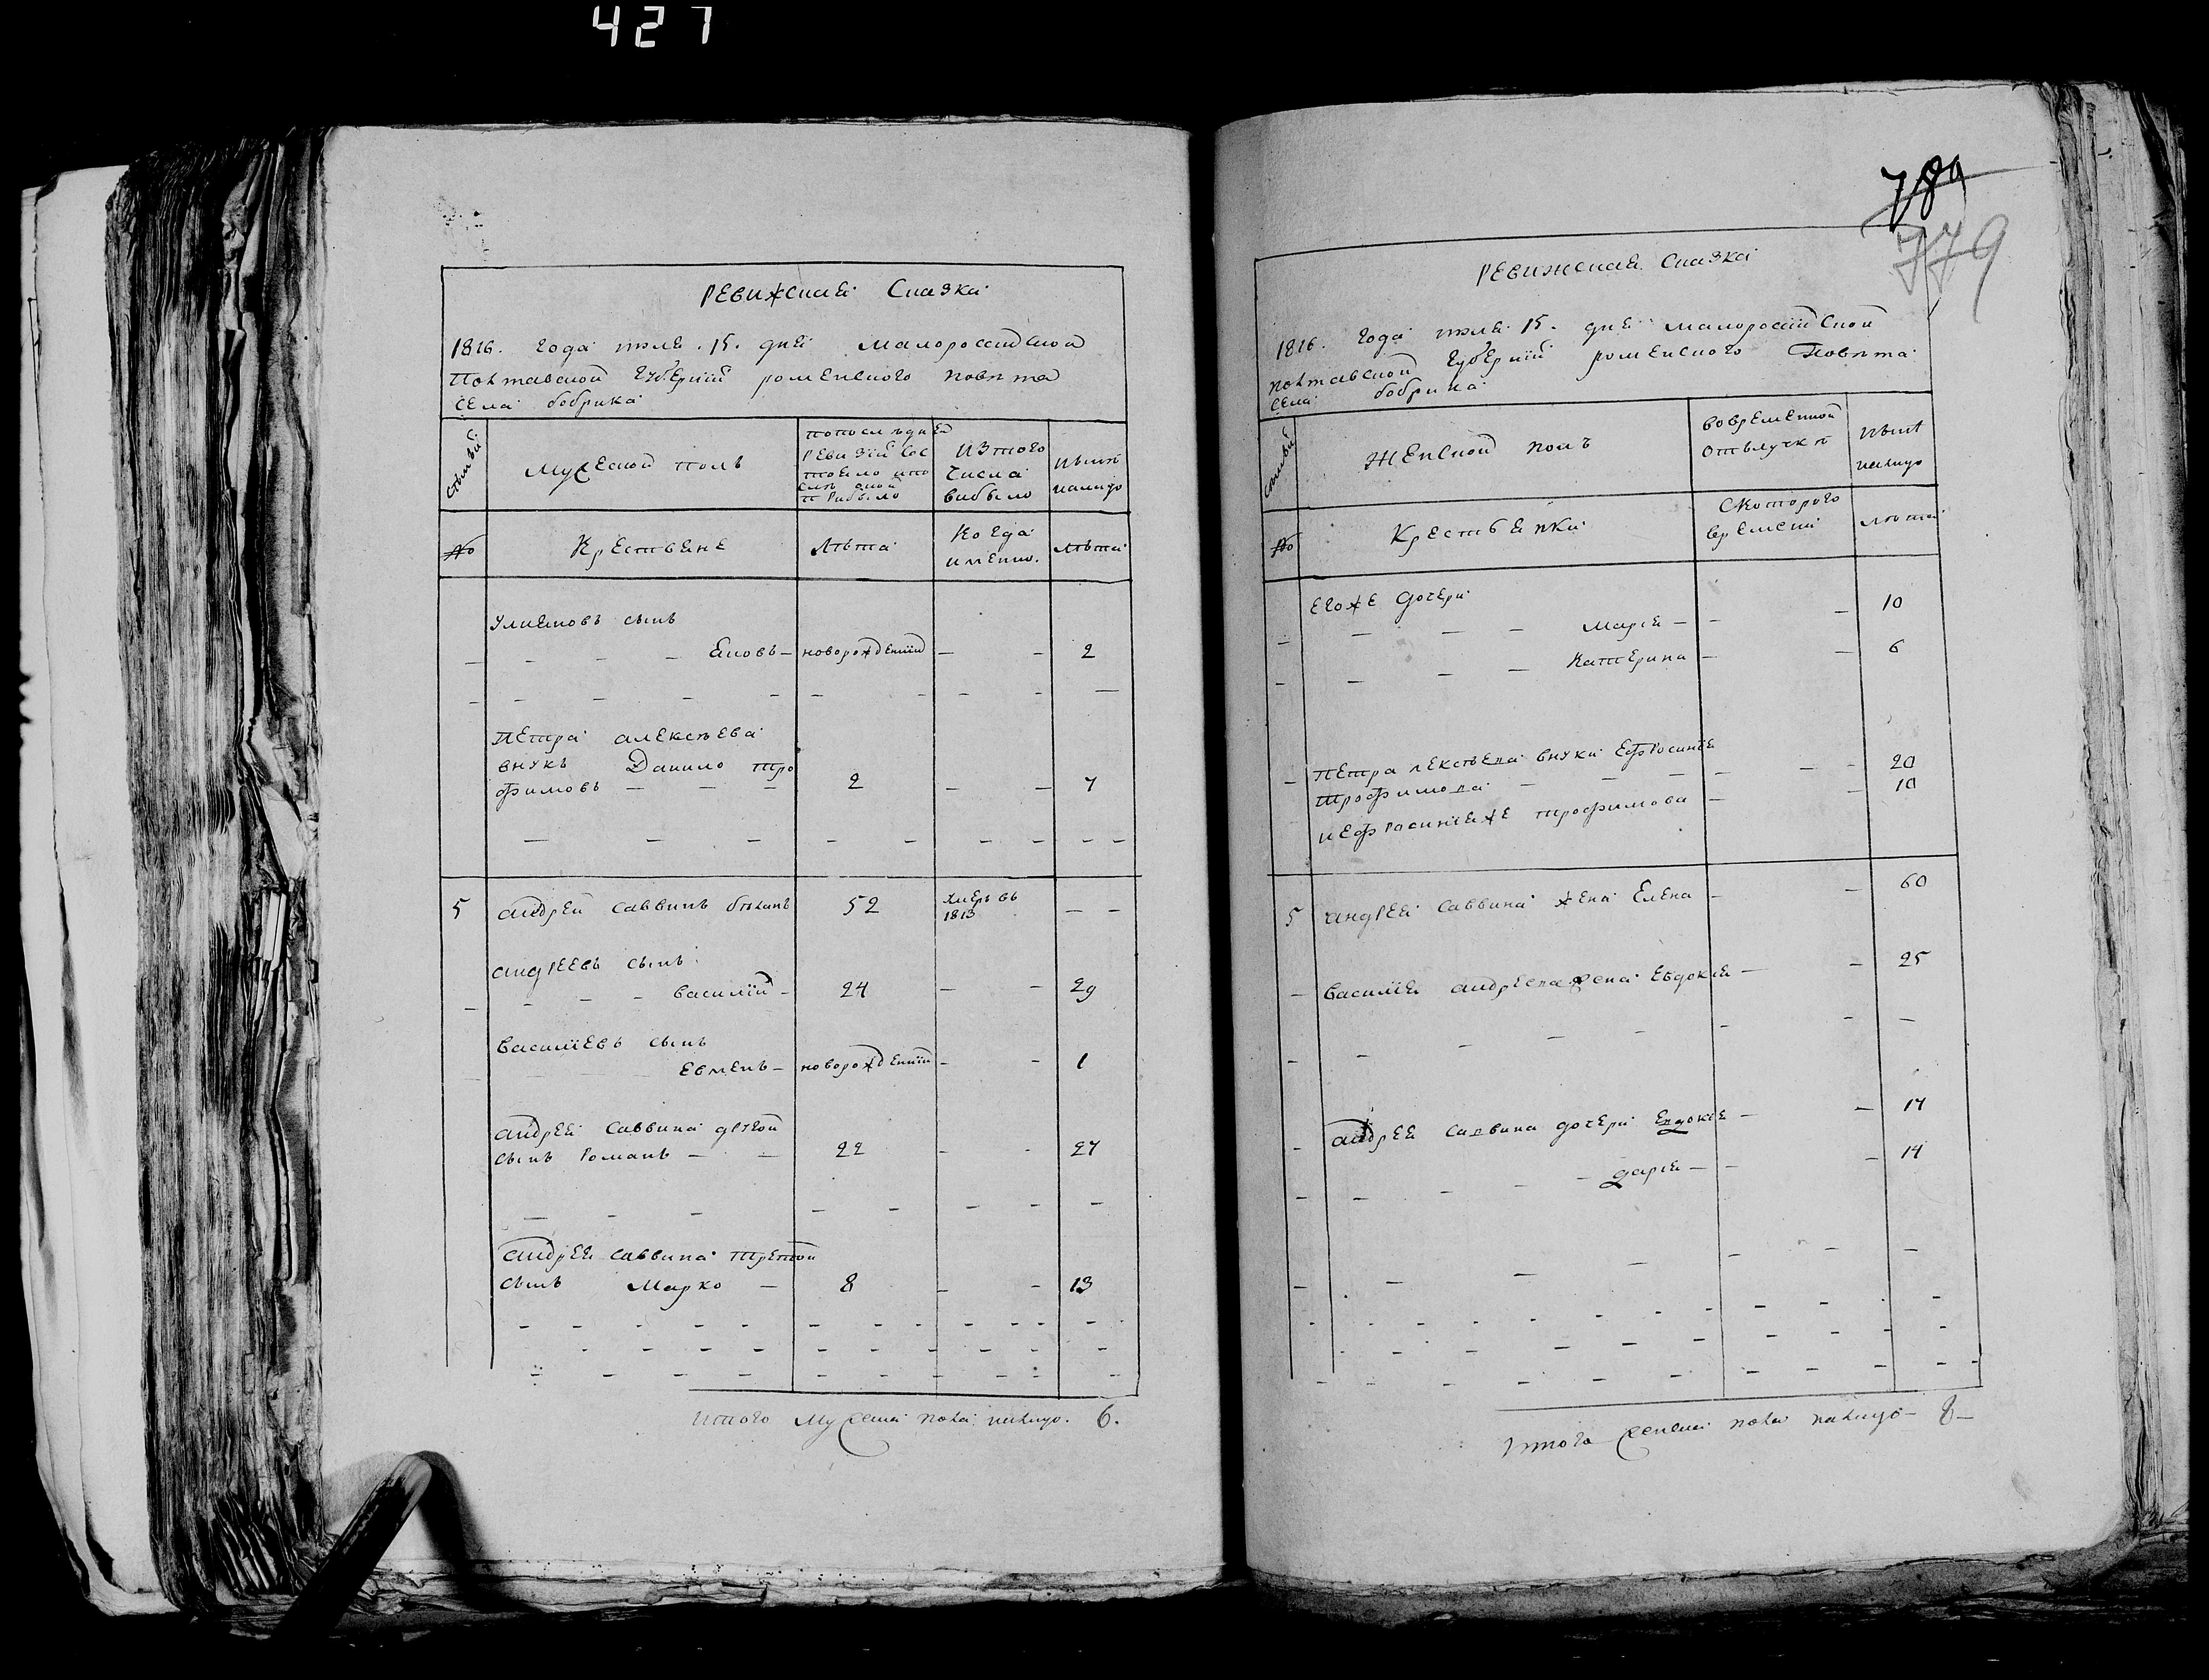 427
Ревижская Сказка
1816. года июля .15. дня Малороссийской
Полтавской Губернии роменского повѣта
села бобрика
Семьи
Мужеской полъ
попоследней
Ревизии сос
тояло и по
слѣ оной
прибыло
Изтого
числа
вибыло
Нынѣ
налицо
№
Крестьяне
Лѣта
Когда
имянно.
Лѣта
Улияновъ сынъ
Яковъ – новорожденний – – 2
Петра алексѣева
внукъ Данило тро
фимовъ – – – 2 – – 7
5 андрей саввинъ 52 Умеръ въ
1813 – –
андреевъ сынъ
– – – василий – 24 – – 29
василиевъ сынъ
Евменъ – новорожденний – – 1
андрея саввина другой
сынъ Романъ – – 22 – – 27
андрея саввина третой
сынъ Марко – 8 – – 13
итого мужеска пола налицо. 6.
789
779
Ревижская Сказка
1816. года июля 15. дня малороссийской
полтавской Губернии роменского Повѣта
села бобрика
Семьи
Женской полъ
вовременной
отлучкѣ
Нынѣ
налицо
№
Крестьянки
Скоторого
времени
лѣта
Егоже дочери
– – – Мария – – – 10
– – – Катерина – – 6
– Петра лексѣева внуки Ефросиния
Трофимова – – – – – 20
иЕфросинияже трофимова – – 10
5 андрея саввина жена Елена – – 60
– василия андреева жена Евдокия – – 25
– андрея саввина дочери Евдокия – – 17
– – – – – дария – – – 14
Итого женска пола налицо – 8 –